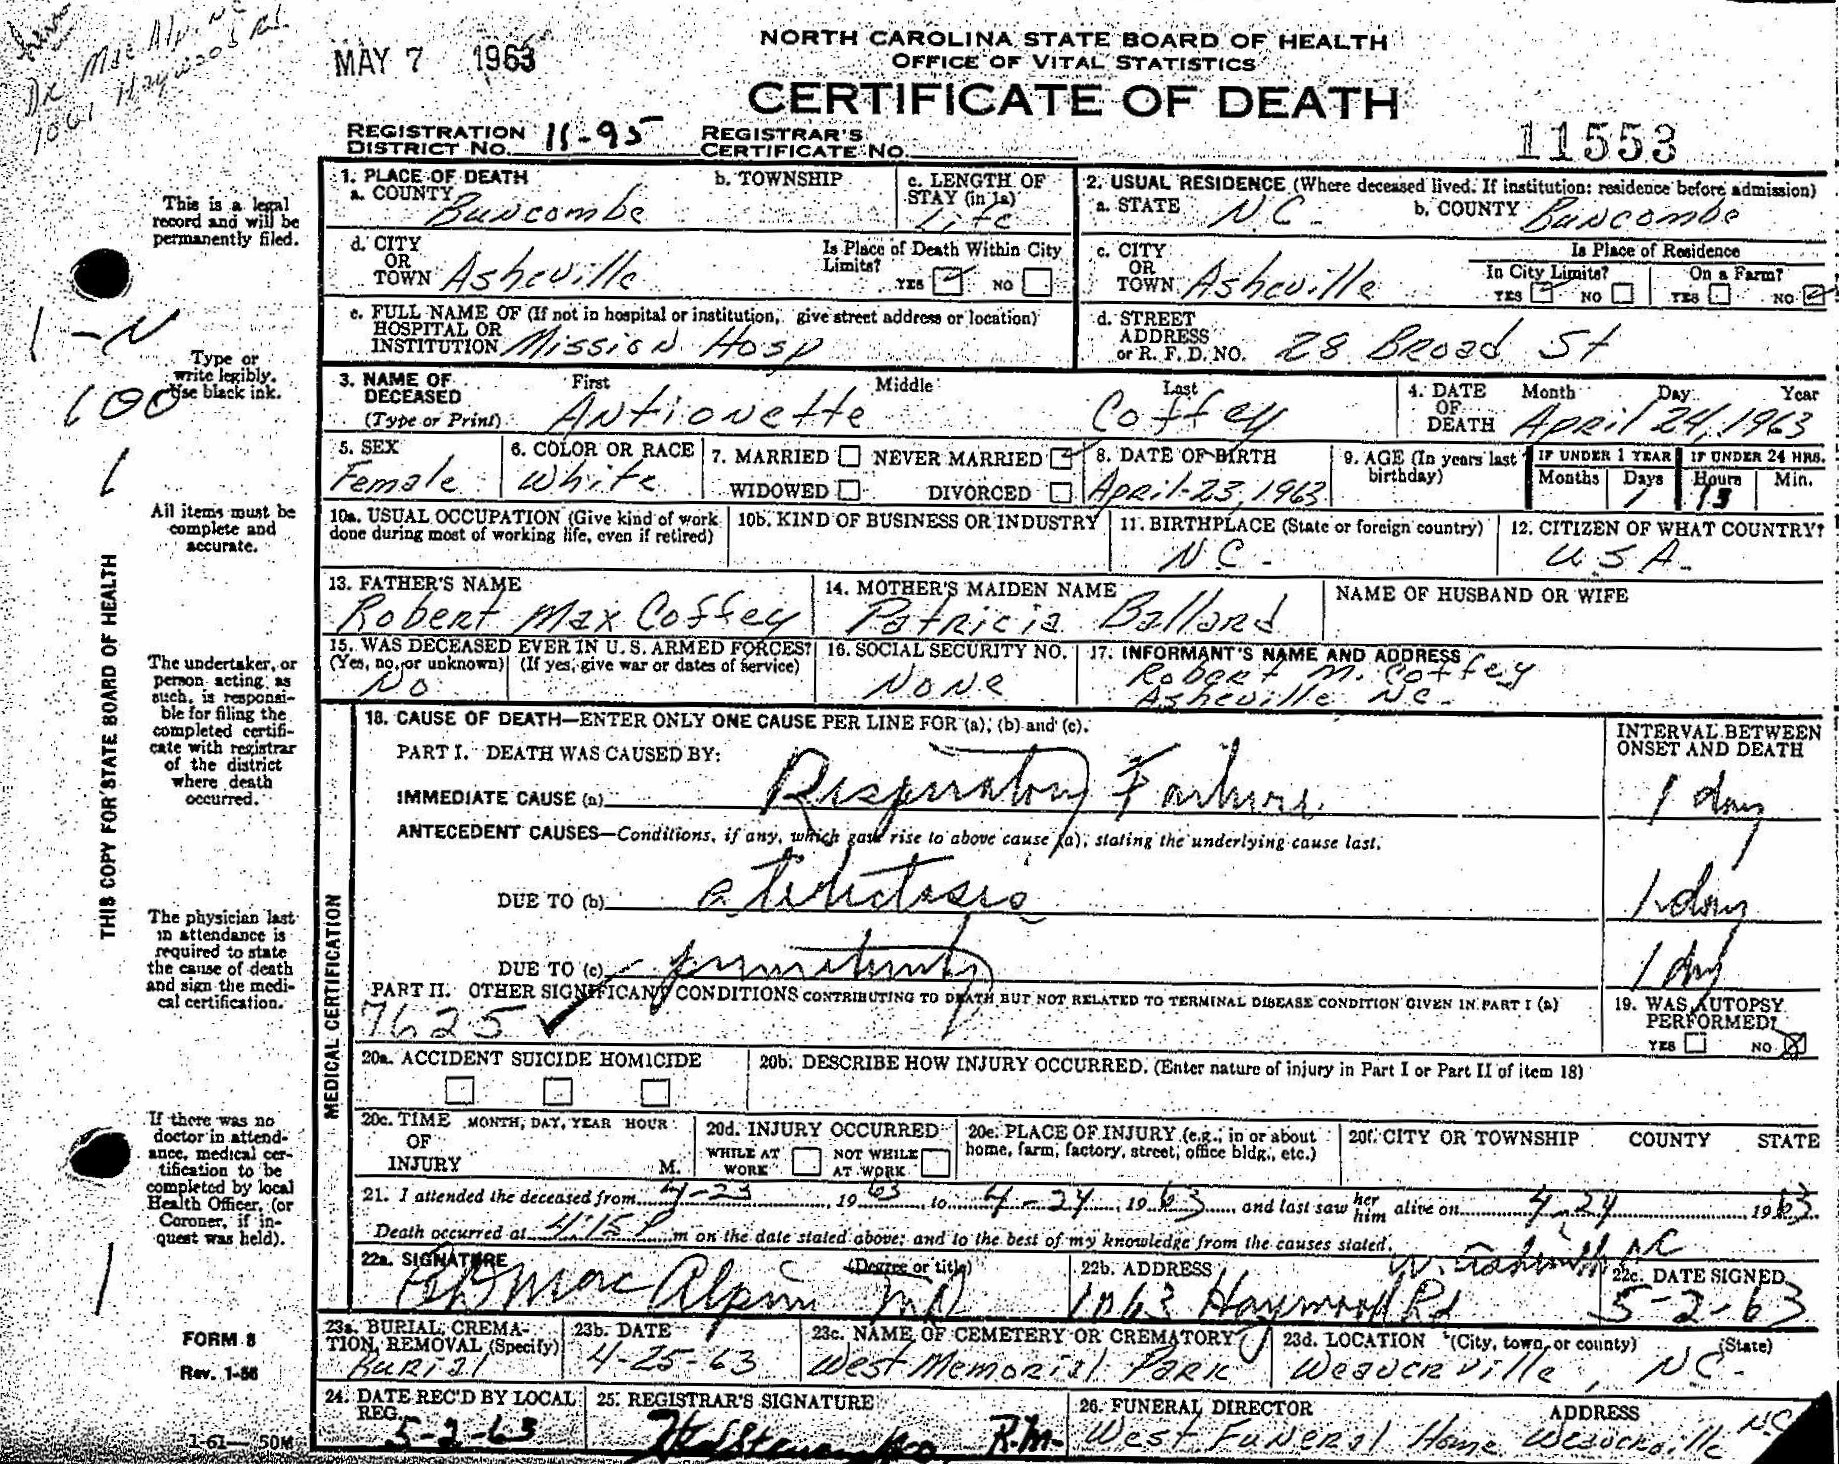 Dr Mac Alpin
1061 Haywood Rd
MAY 7 1963
NORTH CAROLINA STATE BOARD OF HEALTH
OFFICE OF VITAL STATISTICS
CERTIFICATE OF DEATH
REGISTRATION DISTRICT NO. 11-95 REGISTRAR'S CERTIFICATE NO.
11553
1. PLACE OF DEATH
a. COUNTY Buncombe
b. TOWNSHIP
c. LENGTH OF STAY (in 1a) Life
2. USUAL RESIDENCE (Where deceased lived. If institution: residence before admission)
a. STATE N.C. b. COUNTY Buncombe
d. CITY OR TOWN Asheville
Is Place of Death Within City Limits? YES NO
c. CITY OR TOWN Asheville
Is Place of Residence
In City Limits? YES NO
On a Farm? YES NO
e. FULL NAME OF (If not in hospital or institution, give street address or location)
HOSPITAL OR
INSTITUTION Mission Hosp
d. STREET ADDRESS or R. F. D. NO. 28 Broad St
3. NAME OF DECEASED (Type or Print)
First Middle Last
Antionette Coffey
4. DATE OF DEATH Month Day Year
April 24, 1963
5. SEX
Female
6. COLOR OR RACE
White
7. MARRIED NEVER MARRIED
WIDOWED DIVORCED
8. DATE OF BIRTH
April-23, 1963
9. AGE (In years last birthday)
IF UNDER 1 YEAR
Months Days
1
IF UNDER 24 HRS.
Hours Min.
13
10a. USUAL OCCUPATION (Give kind of work done during most of working life, even if retired)
10b. KIND OF BUSINESS OR INDUSTRY
11. BIRTHPLACE (State or foreign country)
N.C.
12. CITIZEN OF WHAT COUNTRY?
U.S.A.
13. FATHER'S NAME
Robert Max Coffey
14. MOTHER'S MAIDEN NAME
Patricia Ballard
NAME OF HUSBAND OR WIFE
15. WAS DECEASED EVER IN U. S. ARMED FORCES?
(Yes, no, or unknown) (If yes, give war or dates of service)
No
16. SOCIAL SECURITY NO.
None
17. INFORMANT'S NAME AND ADDRESS
Robert M. Coffey
Asheville, N.C.
MEDICAL CERTIFICATION
18. CAUSE OF DEATH—ENTER ONLY ONE CAUSE PER LINE FOR (a), (b) and (c).
INTERVAL BETWEEN ONSET AND DEATH
PART I. DEATH WAS CAUSED BY:
IMMEDIATE CAUSE (a) Respiratory Failure 1 day
ANTECEDENT CAUSES—Conditions, if any, which gave rise to above cause (a), stating the underlying cause last.
DUE TO (b) atelectasis 1 day
DUE TO (c) prematurity 1 day
PART II. OTHER SIGNIFICANT CONDITIONS CONTRIBUTING TO DEATH BUT NOT RELATED TO TERMINAL DISEASE CONDITION GIVEN IN PART I (a)
7625 ✓
19. WAS AUTOPSY PERFORMED?
YES NO
20a. ACCIDENT SUICIDE HOMICIDE
20b. DESCRIBE HOW INJURY OCCURRED. (Enter nature of injury in Part I or Part II of item 18)
20c. TIME OF INJURY MONTH, DAY, YEAR HOUR M.
20d. INJURY OCCURRED
WHILE AT WORK NOT WHILE AT WORK
20e. PLACE OF INJURY (e.g., in or about home, farm, factory, street, office bldg., etc.)
20f. CITY OR TOWNSHIP COUNTY STATE
21. I attended the deceased from 4-23, 1963 to 4-24, 1963 and last saw her him alive on 4-24 1963
Death occurred at 4:15 P m on the date stated above; and to the best of my knowledge from the causes stated.
22a. SIGNATURE (Degree or title)
MacAlpin MD
22b. ADDRESS
1063 Haywood Rd
W. Asheville NC
22c. DATE SIGNED
5-2-63
23a. BURIAL, CREMATION, REMOVAL (Specify)
Burial
23b. DATE
4-25-63
23c. NAME OF CEMETERY OR CREMATORY
West Memorial Park
23d. LOCATION (City, town, or county) (State)
Weaverville, N.C.
24. DATE REC'D BY LOCAL REG.
5-2-63
25. REGISTRAR'S SIGNATURE
R.M.
26. FUNERAL DIRECTOR ADDRESS
West Funeral Home Weaverville N.C.
This is a legal
record and will be
permanently filed.
1-N
Type or
write legibly.
Use black ink.
100
1
All items must be
complete and
accurate.
THIS COPY FOR STATE BOARD OF HEALTH
The undertaker, or
person acting as
such, is responsi-
ble for filing the
completed certifi-
cate with registrar
of the district
where death
occurred.
The physician last
in attendance is
required to state
the cause of death
and sign the medi-
cal certification.
If there was no
doctor in attend-
ance, medical cer-
tification to be
completed by local
Health Officer, (or
Coroner, if in-
quest was held).
1
FORM 8
Rev. 1-56
1-61— 50M